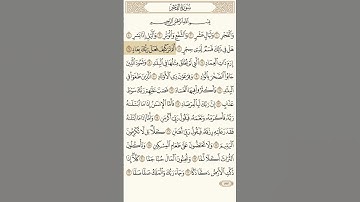 سُورَةُ الفَجْرِ
بِسْمِ اللَّهِ الرَّحْمَٰنِ الرَّحِيمِ
وَالْفَجْرِ ١ وَلَيَالٍ عَشْرٍ ٢ وَالشَّفْعِ وَالْوَتْرِ ٣ وَاللَّيْلِ إِذَا يَسْرِ ٤
هَلْ فِي ذَٰلِكَ قَسَمٌ لِّذِي حِجْرٍ ٥ أَلَمْ تَرَ كَيْفَ فَعَلَ رَبُّكَ بِعَادٍ ٦
إِرَمَ ذَاتِ الْعِمَادِ ٧ الَّتِي لَمْ يُخْلَقْ مِثْلُهَا فِي الْبِلَادِ ٨ وَثَمُودَ الَّذِينَ جَابُوا
الصَّخْرَ بِالْوَادِ ٩ وَفِرْعَوْنَ ذِي الْأَوْتَادِ ١٠ الَّذِينَ طَغَوْا فِي
الْبِلَادِ ١١ فَأَكْثَرُوا فِيهَا الْفَسَادَ ١٢ فَصَبَّ عَلَيْهِمْ رَبُّكَ سَوْطَ
عَذَابٍ ١٣ إِنَّ رَبَّكَ لَبِالْمِرْصَادِ ١٤ فَأَمَّا الْإِنسَانُ إِذَا مَا ابْتَلَاهُ
رَبُّهُ فَأَكْرَمَهُ وَنَعَّمَهُ فَيَقُولُ رَبِّي أَكْرَمَنِ ١٥ وَأَمَّا إِذَا مَا ابْتَلَاهُ
فَقَدَرَ عَلَيْهِ رِزْقَهُ فَيَقُولُ رَبِّي أَهَانَنِ ١٦ كَلَّا بَل لَّا تُكْرِمُونَ
الْيَتِيمَ ١٧ وَلَا تَحَاضُّونَ عَلَىٰ طَعَامِ الْمِسْكِينِ ١٨ وَتَأْكُلُونَ
التُّرَاثَ أَكْلًا لَّمًّا ١٩ وَتُحِبُّونَ الْمَالَ حُبًّا جَمًّا ٢٠ كَلَّا إِذَا
دُكَّتِ الْأَرْضُ دَكًّا دَكًّا ٢١ وَجَاءَ رَبُّكَ وَالْمَلَكُ صَفًّا صَفًّا ٢٢